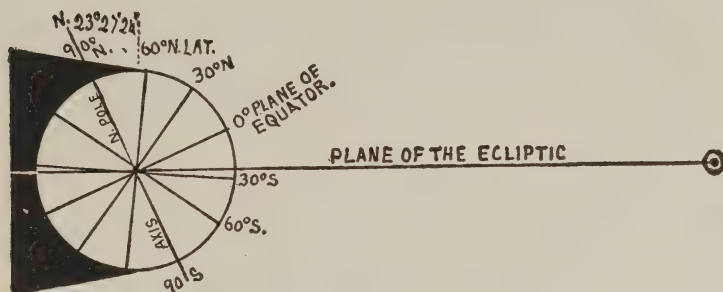 N. 23°27'24"
90°N.
60°N.LAT.
30°N
N. POLE
0° PLANE OF
EQUATOR.
PLANE OF THE ECLIPTIC
30°S
60°S.
AXIS
90°S